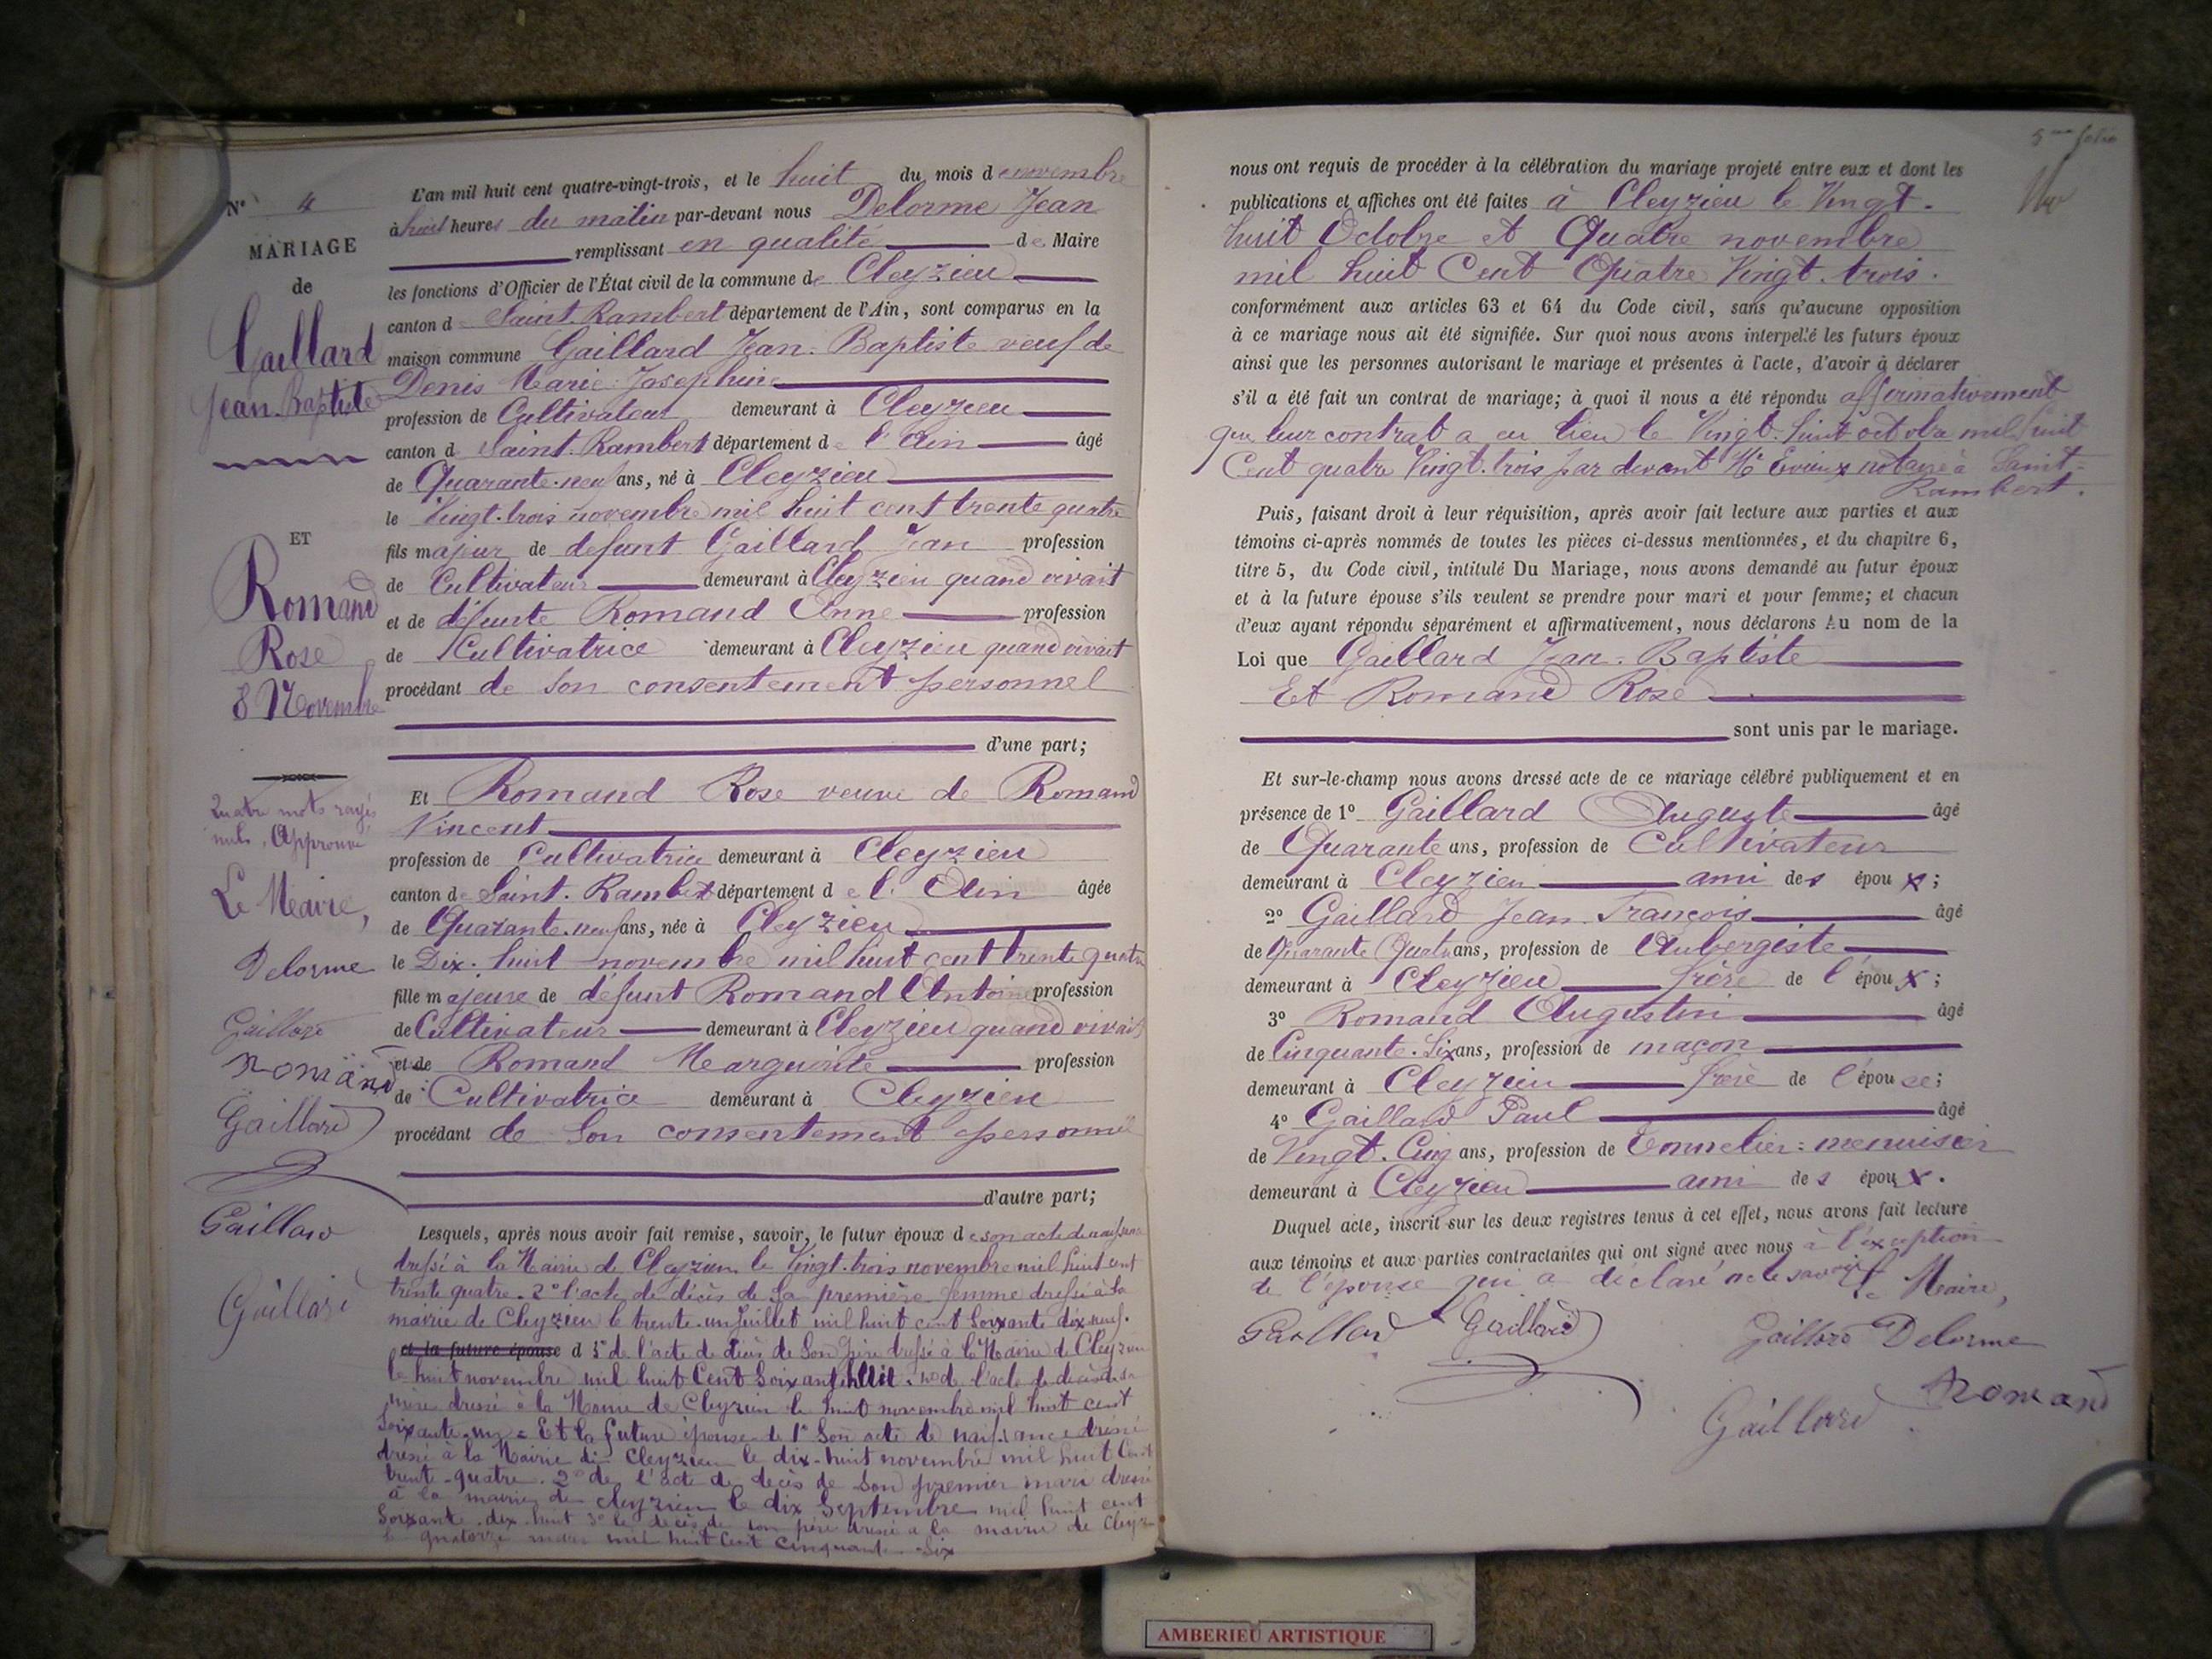 N° 4
MARIAGE
de
Gaillard
Jean-Baptiste
ET
Romand
Rose
8 Novembre
Quatre mots rayés
nuls. Approuvé
Le Maire,
Delorme
Gaillard
Romand
Gaillard
Gaillard
Gaillard
L'an mil huit cent quatre-vingt-trois, et le huit du mois de novembre
à huit heures du matin par-devant nous Delorme Jean
remplissant en qualité de Maire
les fonctions d'Officier de l'État civil de la commune de Cleyzieu
canton d Saint-Rambert département de l'Ain, sont comparus en la
maison commune Gaillard Jean-Baptiste veuf de
Denis Marie-Josephine
profession de Cultivateur demeurant à Cleyzieu
canton d Saint-Rambert département de l'Ain âgé
de Quarante-neuf ans, né à Cleyzieu
le Vingt-trois novembre mil huit cent trente quatre
fils majeur de defunt Gaillard Jean profession
de Cultivateur demeurant à Cleyzieu quand vivait
et de défunte Romand Anne profession
de Cultivatrice demeurant à Cleyzieu quand vivait
procédant de son consentement personnel
d'une part;
Et Romand Rose veuve de Romand
Vincent
profession de Cultivatrice demeurant à Cleyzieu
canton de Saint-Rambert département de l'Ain âgée
de Quarante-neuf ans, née à Cleyzieu
le Dix-huit novembre mil huit cent trente quatre
fille majeure de défunt Romand Antoine profession
de Cultivateur demeurant à Cleyzieu quand vivait
et de Romand Marguerite profession
de Cultivatrice demeurant à Cleyzieu
procédant de son consentement personnel
d'autre part;
Lesquels, après nous avoir fait remise, savoir, le futur époux de son acte de naissance
dressé à la Mairie de Cleyzieu le Vingt-trois novembre mil huit cent
trente quatre. 2° l'acte de décès de sa première femme dressé à la
mairie de Cleyzieu le trente-un Juillet mil huit cent Soixante dix-neuf.
et la future épouse d 3° de l'acte de décès de Son Père dressé à la Mairie de Cleyzieu
le huit novembre mil huit Cent Soixante huit. 4° de l'acte de décès de sa
mère dressé à la Mairie de Cleyzieu le huit novembre mil huit cent
Soixante-un = Et la future épouse de 1° Son acte de naissance dressé
dressé à la Mairie de Cleyzieu le dix-huit novembre mil huit Cent
trente-quatre. 2° de l'acte de decès de Son premier mari dressé
à la mairie de Cleyzieu le dix Septembre mil huit cent
Soixante-dix-huit 3° le décès de son père dressé à la mairie de Cleyzieu
le quatorze mars mil huit Cent cinquante-Six
5me folio
nous ont requis de procéder à la célébration du mariage projeté entre eux et dont les
publications et affiches ont été faites à Cleyzieu le Vingt-
huit Octobre et Quatre novembre
mil huit Cent Quatre Vingt-trois.
conformément aux articles 63 et 64 du Code civil, sans qu'aucune opposition
à ce mariage nous ait été signifiée. Sur quoi nous avons interpelé les futurs époux
ainsi que les personnes autorisant le mariage et présentes à l'acte, d'avoir à déclarer
s'il a été fait un contrat de mariage; à quoi il nous a été répondu affirmativement
que leur contrat a eu lieu le Vingt-huit octobre mil huit
Cent quatre Vingt-trois par devant Me notaire à Saint-
Rambert.
Puis, faisant droit à leur réquisition, après avoir fait lecture aux parties et aux
témoins ci-après nommés de toutes les pièces ci-dessus mentionnées, et du chapitre 6,
titre 5, du Code civil, intitulé Du Mariage, nous avons demandé au futur époux
et à la future épouse s'ils veulent se prendre pour mari et pour femme; et chacun
d'eux ayant répondu séparément et affirmativement, nous déclarons Au nom de la
Loi que Gaillard Jean-Baptiste
Et Romand Rose
sont unis par le mariage.
Et sur-le-champ nous avons dressé acte de ce mariage célébré publiquement et en
présence de 1° Gaillard Auguste âgé
de Quarante ans, profession de Cultivateur
demeurant à Cleyzieu ami des époux;
2° Gaillard Jean-François âgé
de Quarante Quatre ans, profession de Aubergiste
demeurant à Cleyzieu frère de l'époux;
3° Romand Augustin âgé
de Cinquante-Six ans, profession de maçon
demeurant à Cleyzieu frère de l'épouse;
4° Gaillard Paul âgé
de Vingt-Cinq ans, profession de Tonnelier-menuisier
demeurant à Cleyzieu ami des époux.
Duquel acte, inscrit sur les deux registres tenus à cet effet, nous avons fait lecture
aux témoins et aux parties contractantes qui ont signé avec nous à l'exception
de l'épouse qui a déclaré ne le savoir Le Maire,
Gaillard Gaillard Gaillard Delorme
Gaillard Romand
AMBERIEU ARTISTIQUE